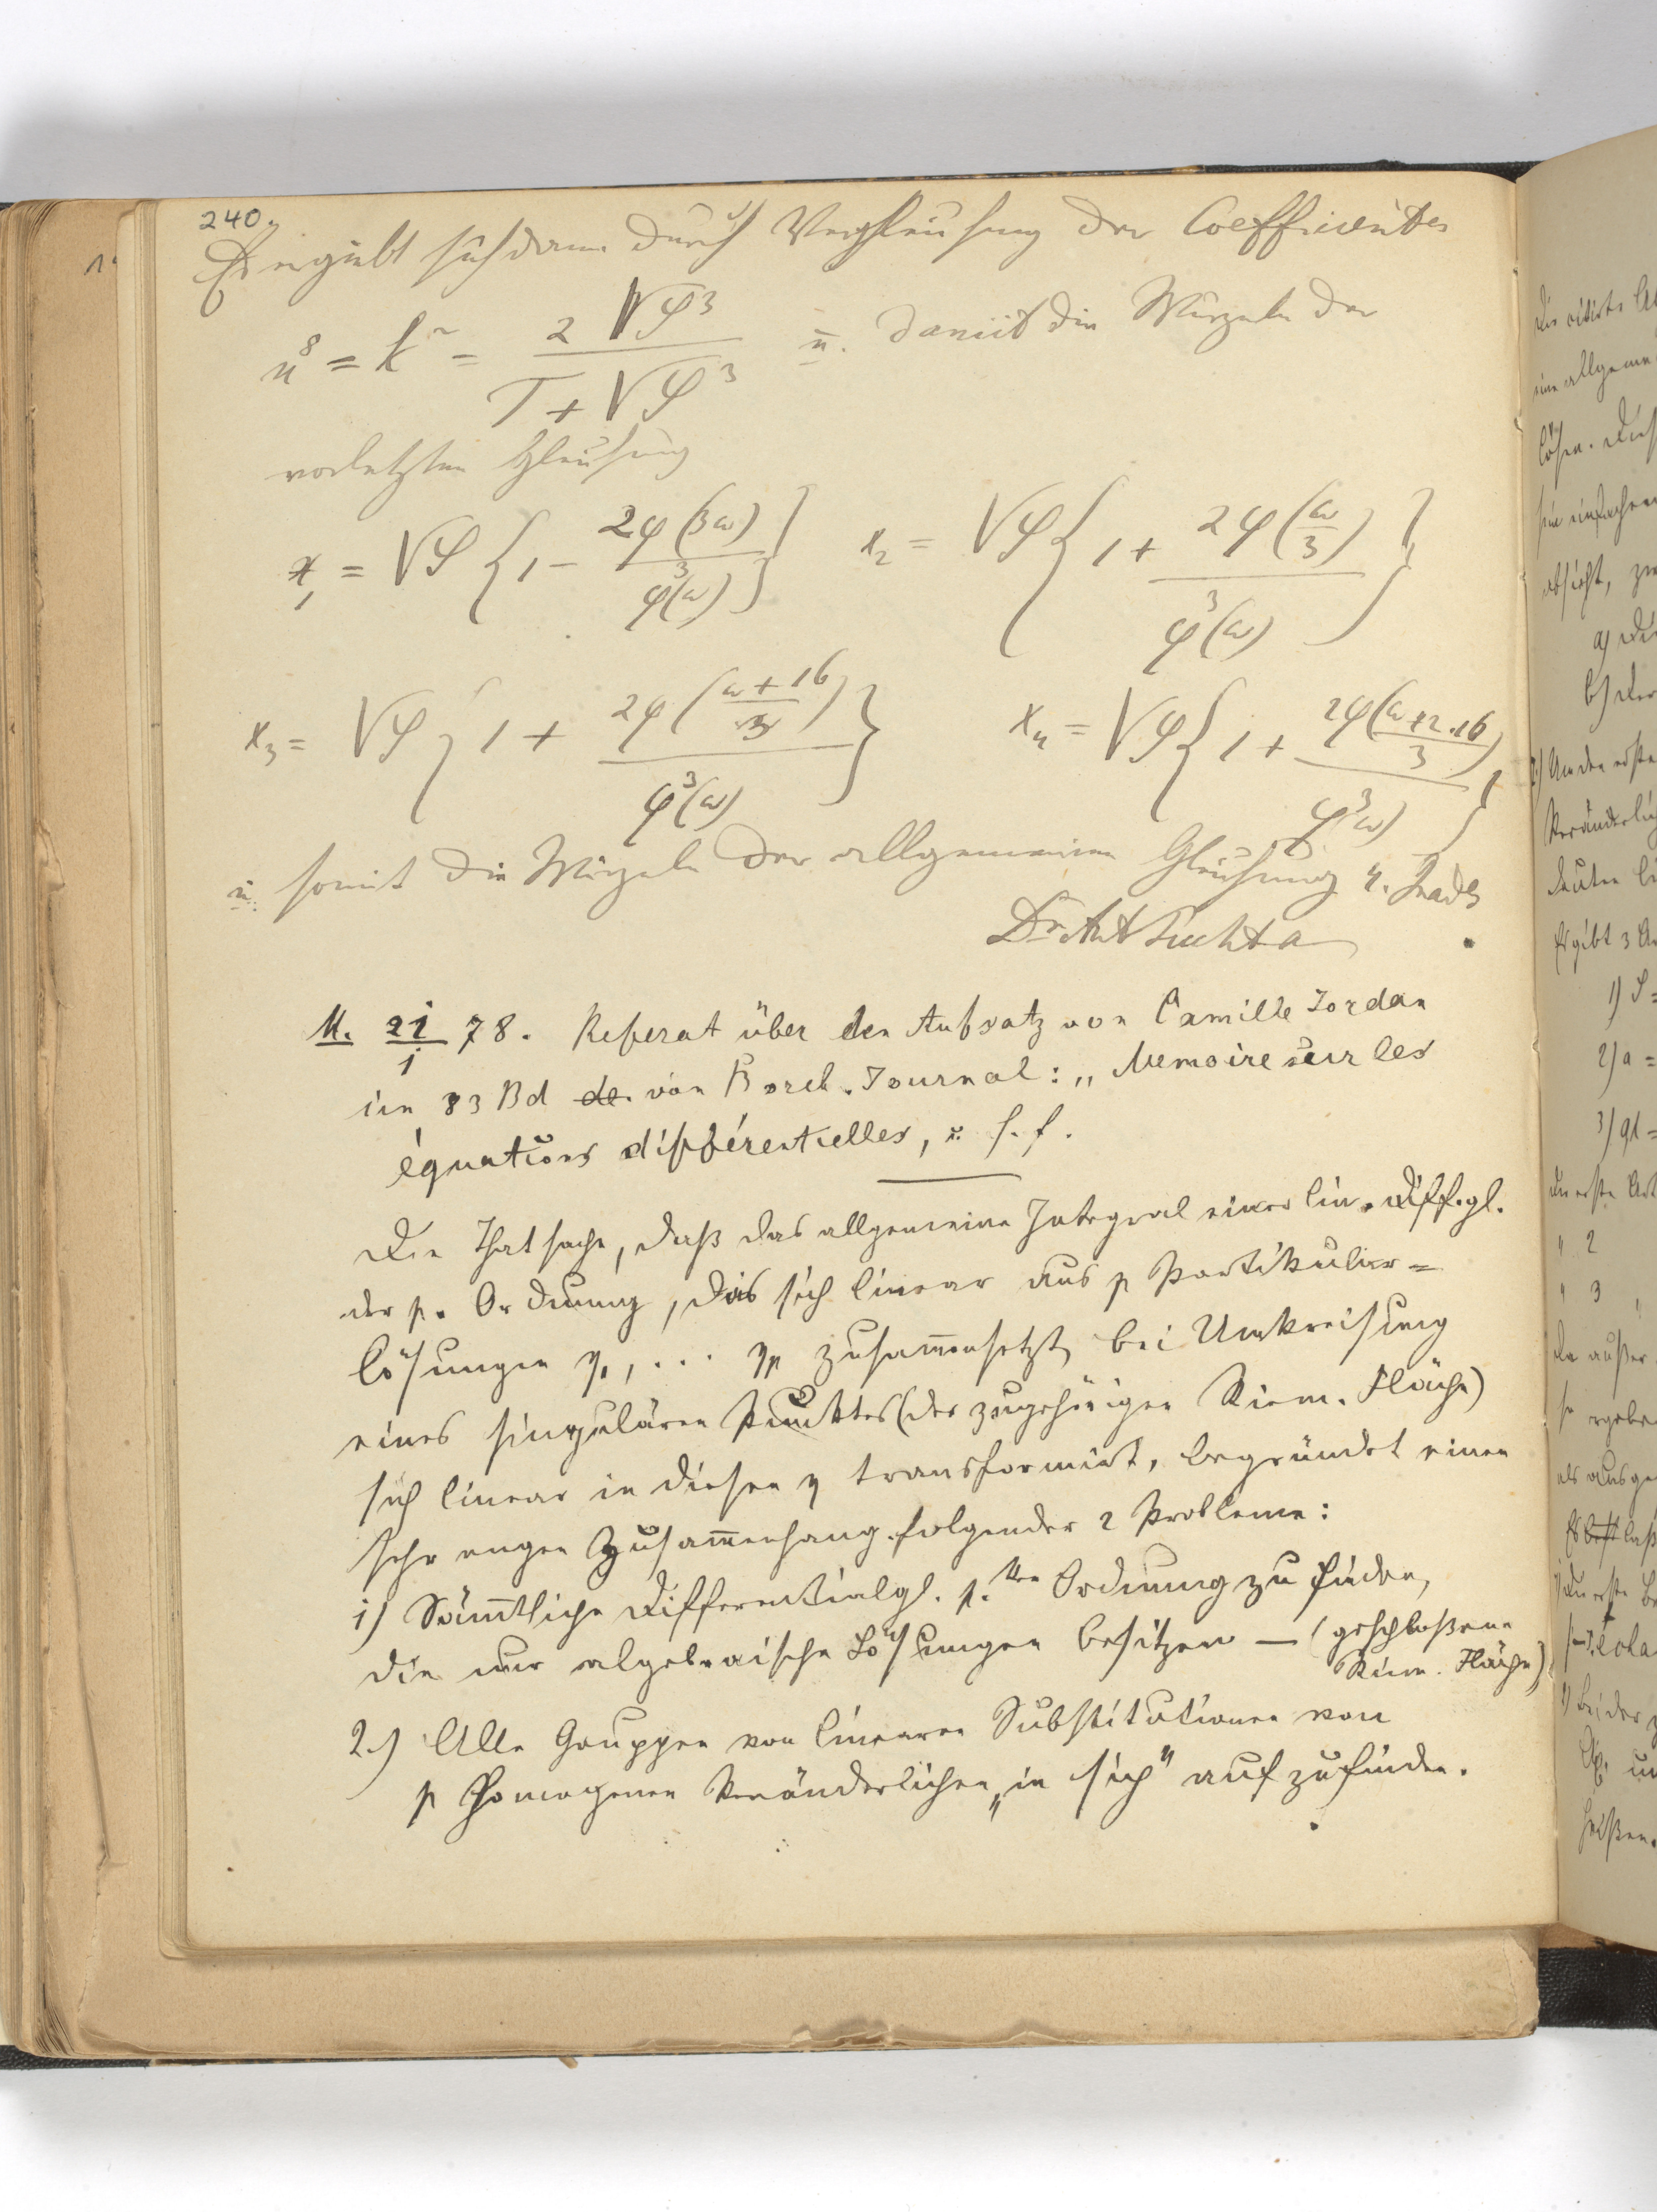 240.
Es ergiebt sich dann durch Vergleichung der Coefficienten
u⁸ = k² = 2 √φ³ / T + √φ³ u. damit die Wurzeln der
vorletzten Gleichung
x₁ = √φ { 1 − 2φ(3ω) / φ³(ω) } x₂ = √φ { 1 + 2φ(ω/3) / φ³(ω) }
x₃ = √φ { 1 + 2φ((ω+16)/3) / φ³(ω) } x₄ = √φ { 1 + 2φ((ω+2.16)/3) / φ³(ω) }
u. somit die Wurzeln der allgemeinen Gleichung 4. Grades
Dr. Ant Puchta
M. 21/1 78. Referat über den Aufsatz von Camille Jordan
im 83 Bd de. von Borch. Journal: „Memoire sur les
équations différentielles, u. s. f.
Die Thatsache, daß das allgemeine Integral einer lin. Diff.gl.
der p. Ordnung, das sich linear aus p Partikulär=
lösungen y₁, ... yp zusam̅ensetzt, bei Umkreisung
eines singulären Punktes (der zugehörigen Riem. Fläche)
sich linear in diesen y transformirt, begründet einen
sehr engen Zusam̅enhang folgender 2 Probleme:
1) Säm̅tliche Differentialgl. p.ten Ordnung zu finden,
die nur algebraische Lösungen besitzen — (geschloßene
Riem. Fläche)
2.) Alle Gruppen von linearen Substitutionen von
p homogenen Veränderlichen „in sich" aufzufinden.